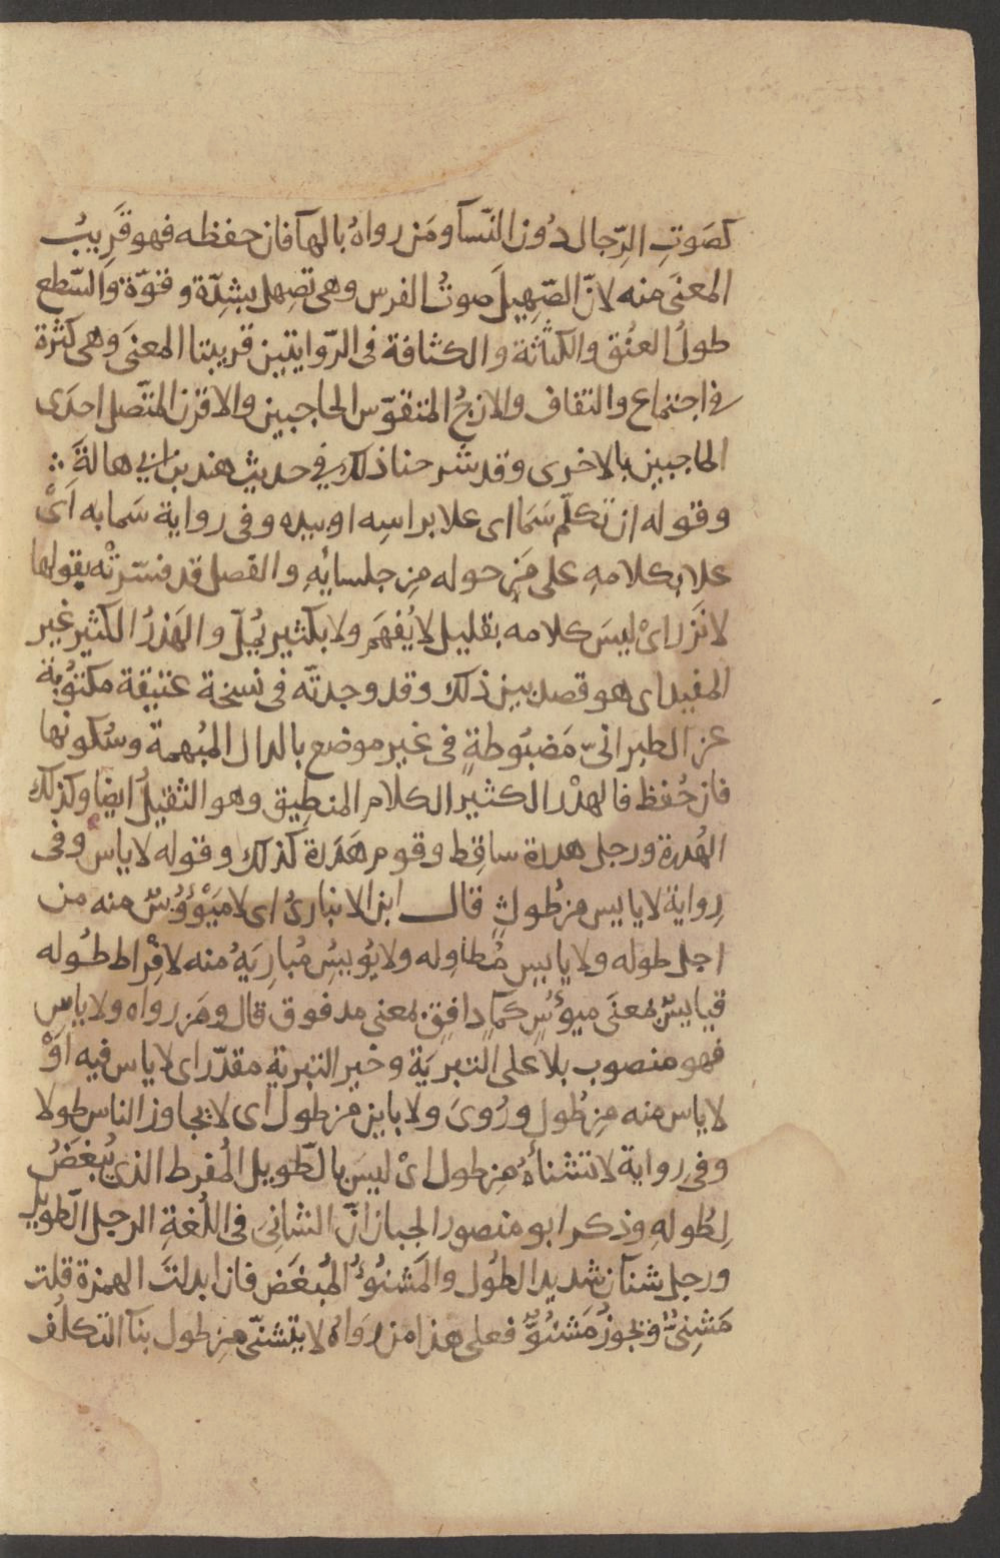 كصَوتِ الرّجال دُون النّسآ ومَن رواهُ بالهآ فان حفظه فهو قَرِيبُ
المعنَى منه لانّ الصّهِيلَ صوتُ الفرس وهى تصهل بشِدّة وقوّة والسّطع
طولُ العنُق والكثاثة والكثافة فى الرّوايتين قريبتا المعنَى وهى كثرة
فى اجتماع والتقاف والازجُ المتقوّس الحاجبين والاقرن المتّصل احدَى
الحاجبين بالاخرى وقد شرحنا ذلك فى حديث هند بن ابى هالةَ ∴
وقوله ان تكلّم سَمَا اى علا براسِه او بيده وفى رواية سَما به اَىْ
علا بكلامهِ على مَن حوله مِن جلسايُهِ والفصل قد فسّرتْه بقولها
لا نَزر اىْ ليسَ كلامه بقليل لا يُفهَم ولا بكثير يُمِلّ والهَذرُ الكثير غير
المفيد اى هو قصد بين ذلك وقد وجدتّه فى نسخة عتيقة مكتوُبة
عن الطبرانىّ مَضبُوطةٍ فى غير موضع بالدال المُبهمة وسُكونها
فان حُفظ فالهدْر الكثير الكلام المنطِيق وهو الثقيلُ ايضا وكذلك
الهُدرة ورجل هدرة ساقِط وقوم هَدَرة كذلك وقوله لا ياس وفى
رِواية لا يايس من طُولٍ قال ابن الانبارىُ اى لا مَيْؤُوسٌ منه من
اجل طوله ولا يايس مُطاوِله ولا يُويسُ مُبارِيَهُ منه لافْراط طُوله
فيايسٌ بمعنَى ميؤُسٍ كمآ دافِق بمعنى مدفوق قال ومَن رواه ولا ياسِ
فهو منصوب بلا على التبريَة وخبر التبرية مقدّر اى لا ياس فيه اوْ
لا ياس منه مِن طُول ورُوىَ ولا باين من طول اى لا يجاوز الناس طولا
وفى رواية لا تشنأهُ مِن طول اىْ ليسَ بالطّويل المُفرط الذى يُبغَضُ
لِطُولهِ وذكر ابو منصور الجبان انّ الشانِى فى اللُغةِ الرجل الطّويل
ورجل شنآن شديد الطُول والمَشنُوُّ المُبغَض فان ابدلتَ الهمزة قلت
مَشنِىٌّ ويجوزُ مَشنُوٌّ فعلى هذا من رَواهُ لا يتشنّى مِن طول بنآ التكلُف